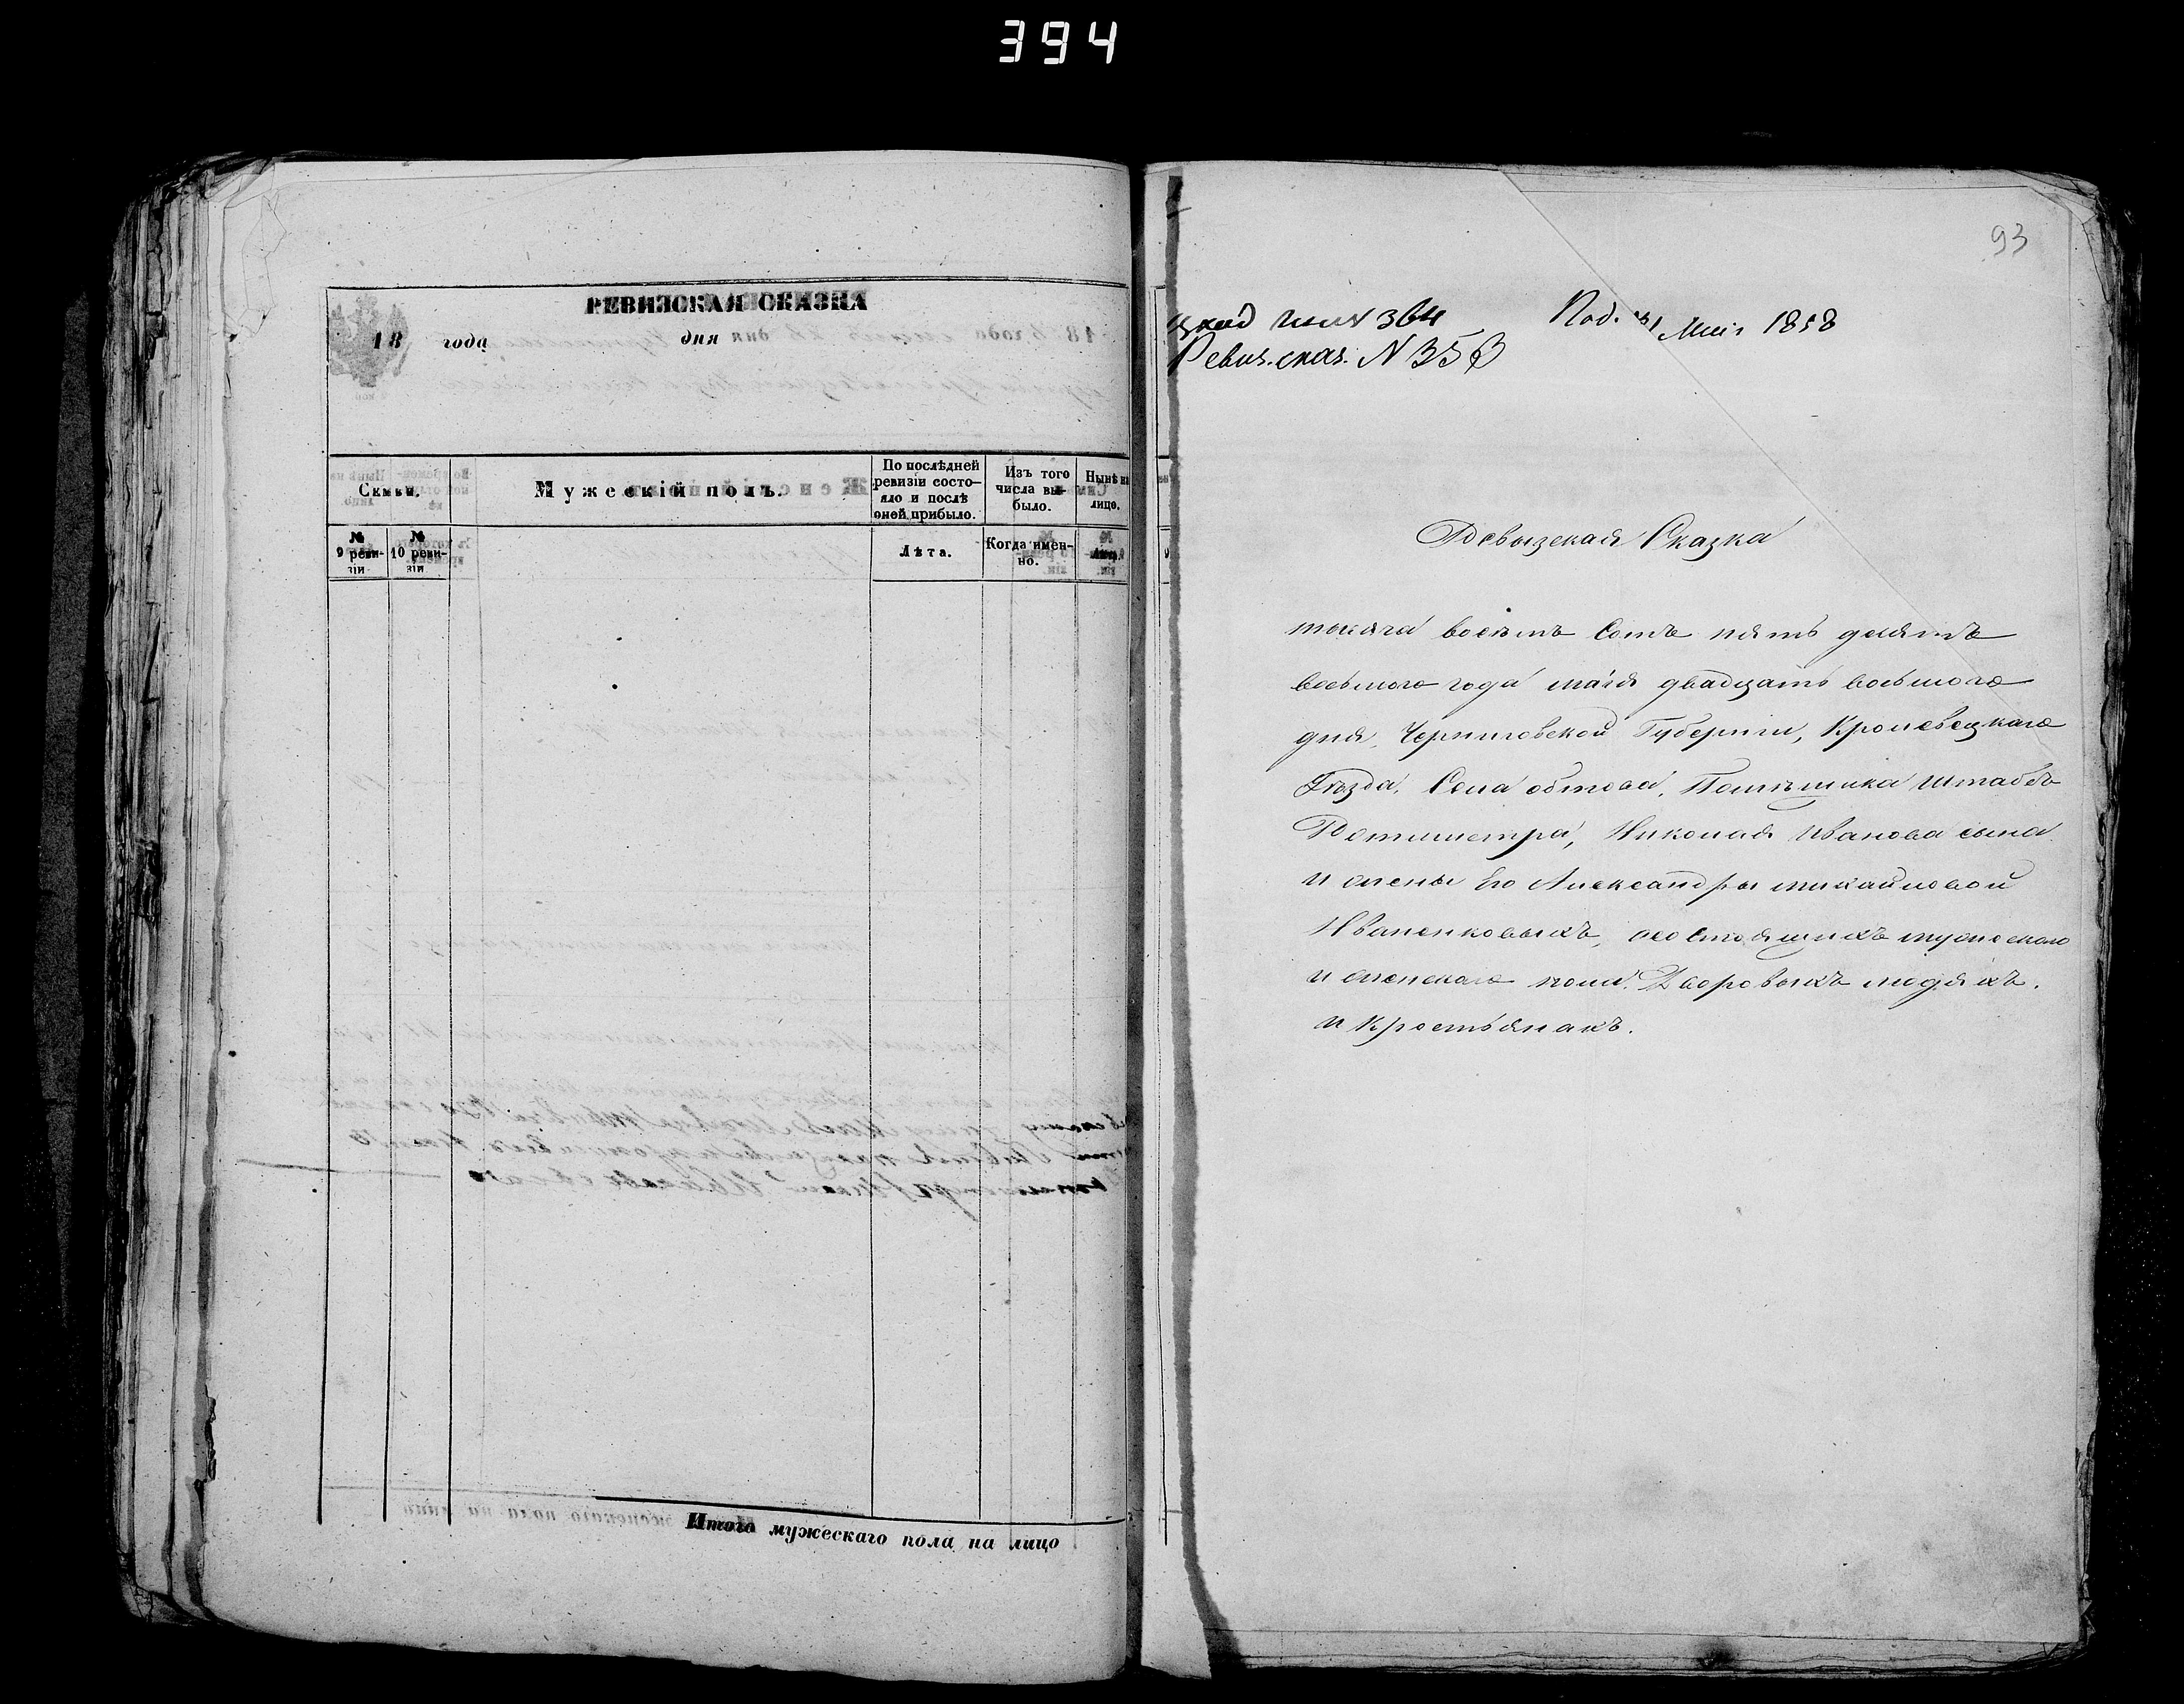 394
РЕВИЗСКАЯ СКАЗКА
18 года дня
Семьи.
Мужескій полъ.
По послѣдней
ревизіи состо-
яло и послѣ
оней прибыло.
Изъ того
числа вы-
было.
Нынѣ на
лице.
№
9 реви-
зіи
№
10 реви-
зіи
Лѣта.
Когда имен-
но.
Итого мужескаго пола на лицо
93
364
Под. 31 Мая 1858
Ревиз. сказ. N 353
Ревызская Сказка
тысяча восемъ Сотъ пять десятъ
восьмого года мая двадцать восьмого
дня, Черниговской Губерніи, Кролевецкаго
Уѣзда, Села обтова, Помѣщика штабсъ
Ротмистра, Николая Иванова сына
и жены Его Александры михайловой
Иваненковыхъ, состоящихъ мужескаго
и женскаго пола. Дворовыхъ людяхъ.
и крестьянахъ.